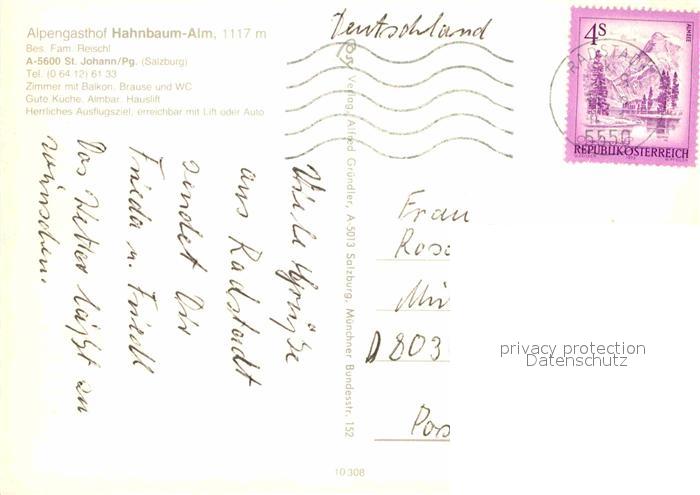 Alpengasthof Hahnbaum-Alm, 1117 m
Bes. Fam. Reischl
A-5600 St. Johann/Pg. (Salzburg)
Tel. (0 64 12) 61 33
Zimmer mit Balkon, Brause und WC
Gute Küche, Almbar, Hauslift
Herrliches Ausflugsziel, erreichbar mit Lift oder Auto
Viele Grüße
aus Radstadt
sendet Dir
Frieda u. Friedl
Das Wetter läßt zu
wünschen.
Verlag Alfred Gründler, A-5013 Salzburg, Münchner Bundesstr. 152
10 308
Deutschland
4S
ALMSEE
REPUBLIK ÖSTERREICH
RADSTADT
5550
Frau
Rose
D 803
Pos
privacy protection
Datenschutz